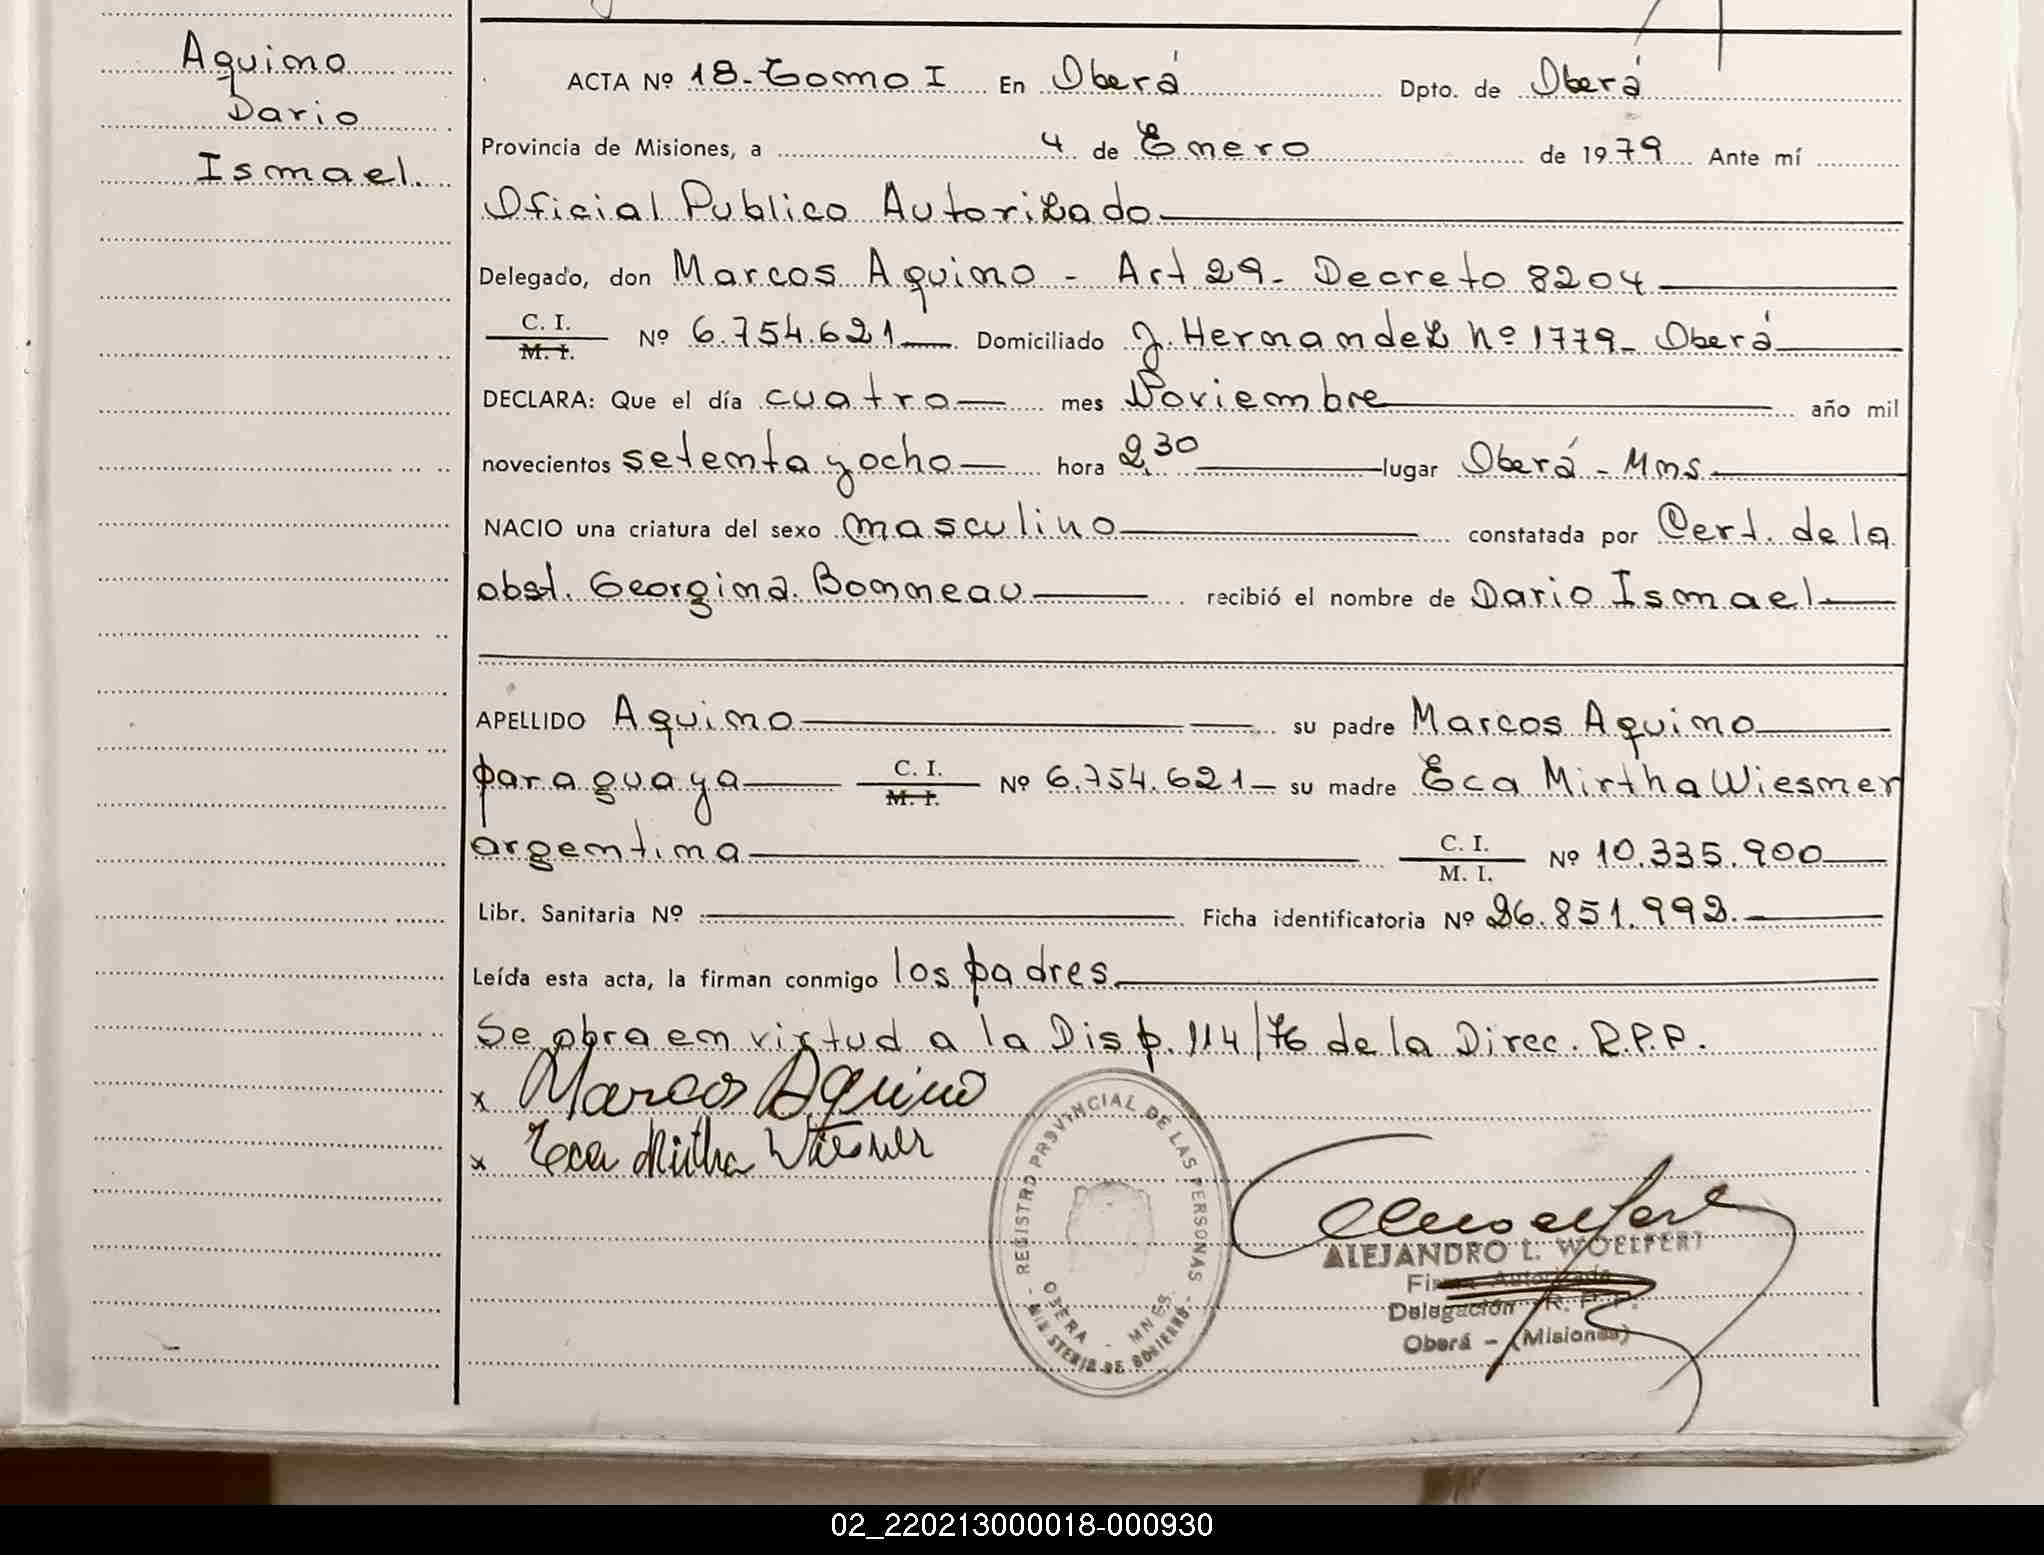 Aquino
Dario
Ismael.
ACTA Nº 18-Tomo I En Oberá Dpto. de Oberá
Provincia de Misiones, a 4 de Enero de 1979 Ante mí
Oficial Publico Autorizado
Delegado, don Marcos Aquino - Art 29- Decreto 8204
C. I. / M. I. Nº 6.754.621 Domiciliado J. Hernandez Nº 1779- Oberá
DECLARA: Que el día cuatro mes Noviembre año mil
novecientos setenta y ocho hora 2,30 lugar Oberá - Mnes
NACIO una criatura del sexo masculino constatada por Cert. de la
obst. Georgina Bonneau recibió el nombre de Dario Ismael
APELLIDO Aquino su padre Marcos Aquino
paraguaya C. I. / M. I. Nº 6.754.621 su madre Eca Mirtha Wiesner
argentina C. I. / M. I. Nº 10.335.900
Libr. Sanitaria Nº Ficha identificatoria Nº 26.851.992.
Leída esta acta, la firman conmigo los padres
Se obra en virtud a la Disp. 114/76 de la Direc. R.P.P.
x Marcos Aquino
x Eca Mirtha Wiesner
REGISTRO PROVINCIAL DE LAS PERSONAS
OBERA - MNES.
- MINISTERIO DE GOBIERNO -
ALEJANDRO L. WOELFERT
Firma Autorizada
Delegación R. P. P.
Oberá - (Misiones)
02_220213000018-000930